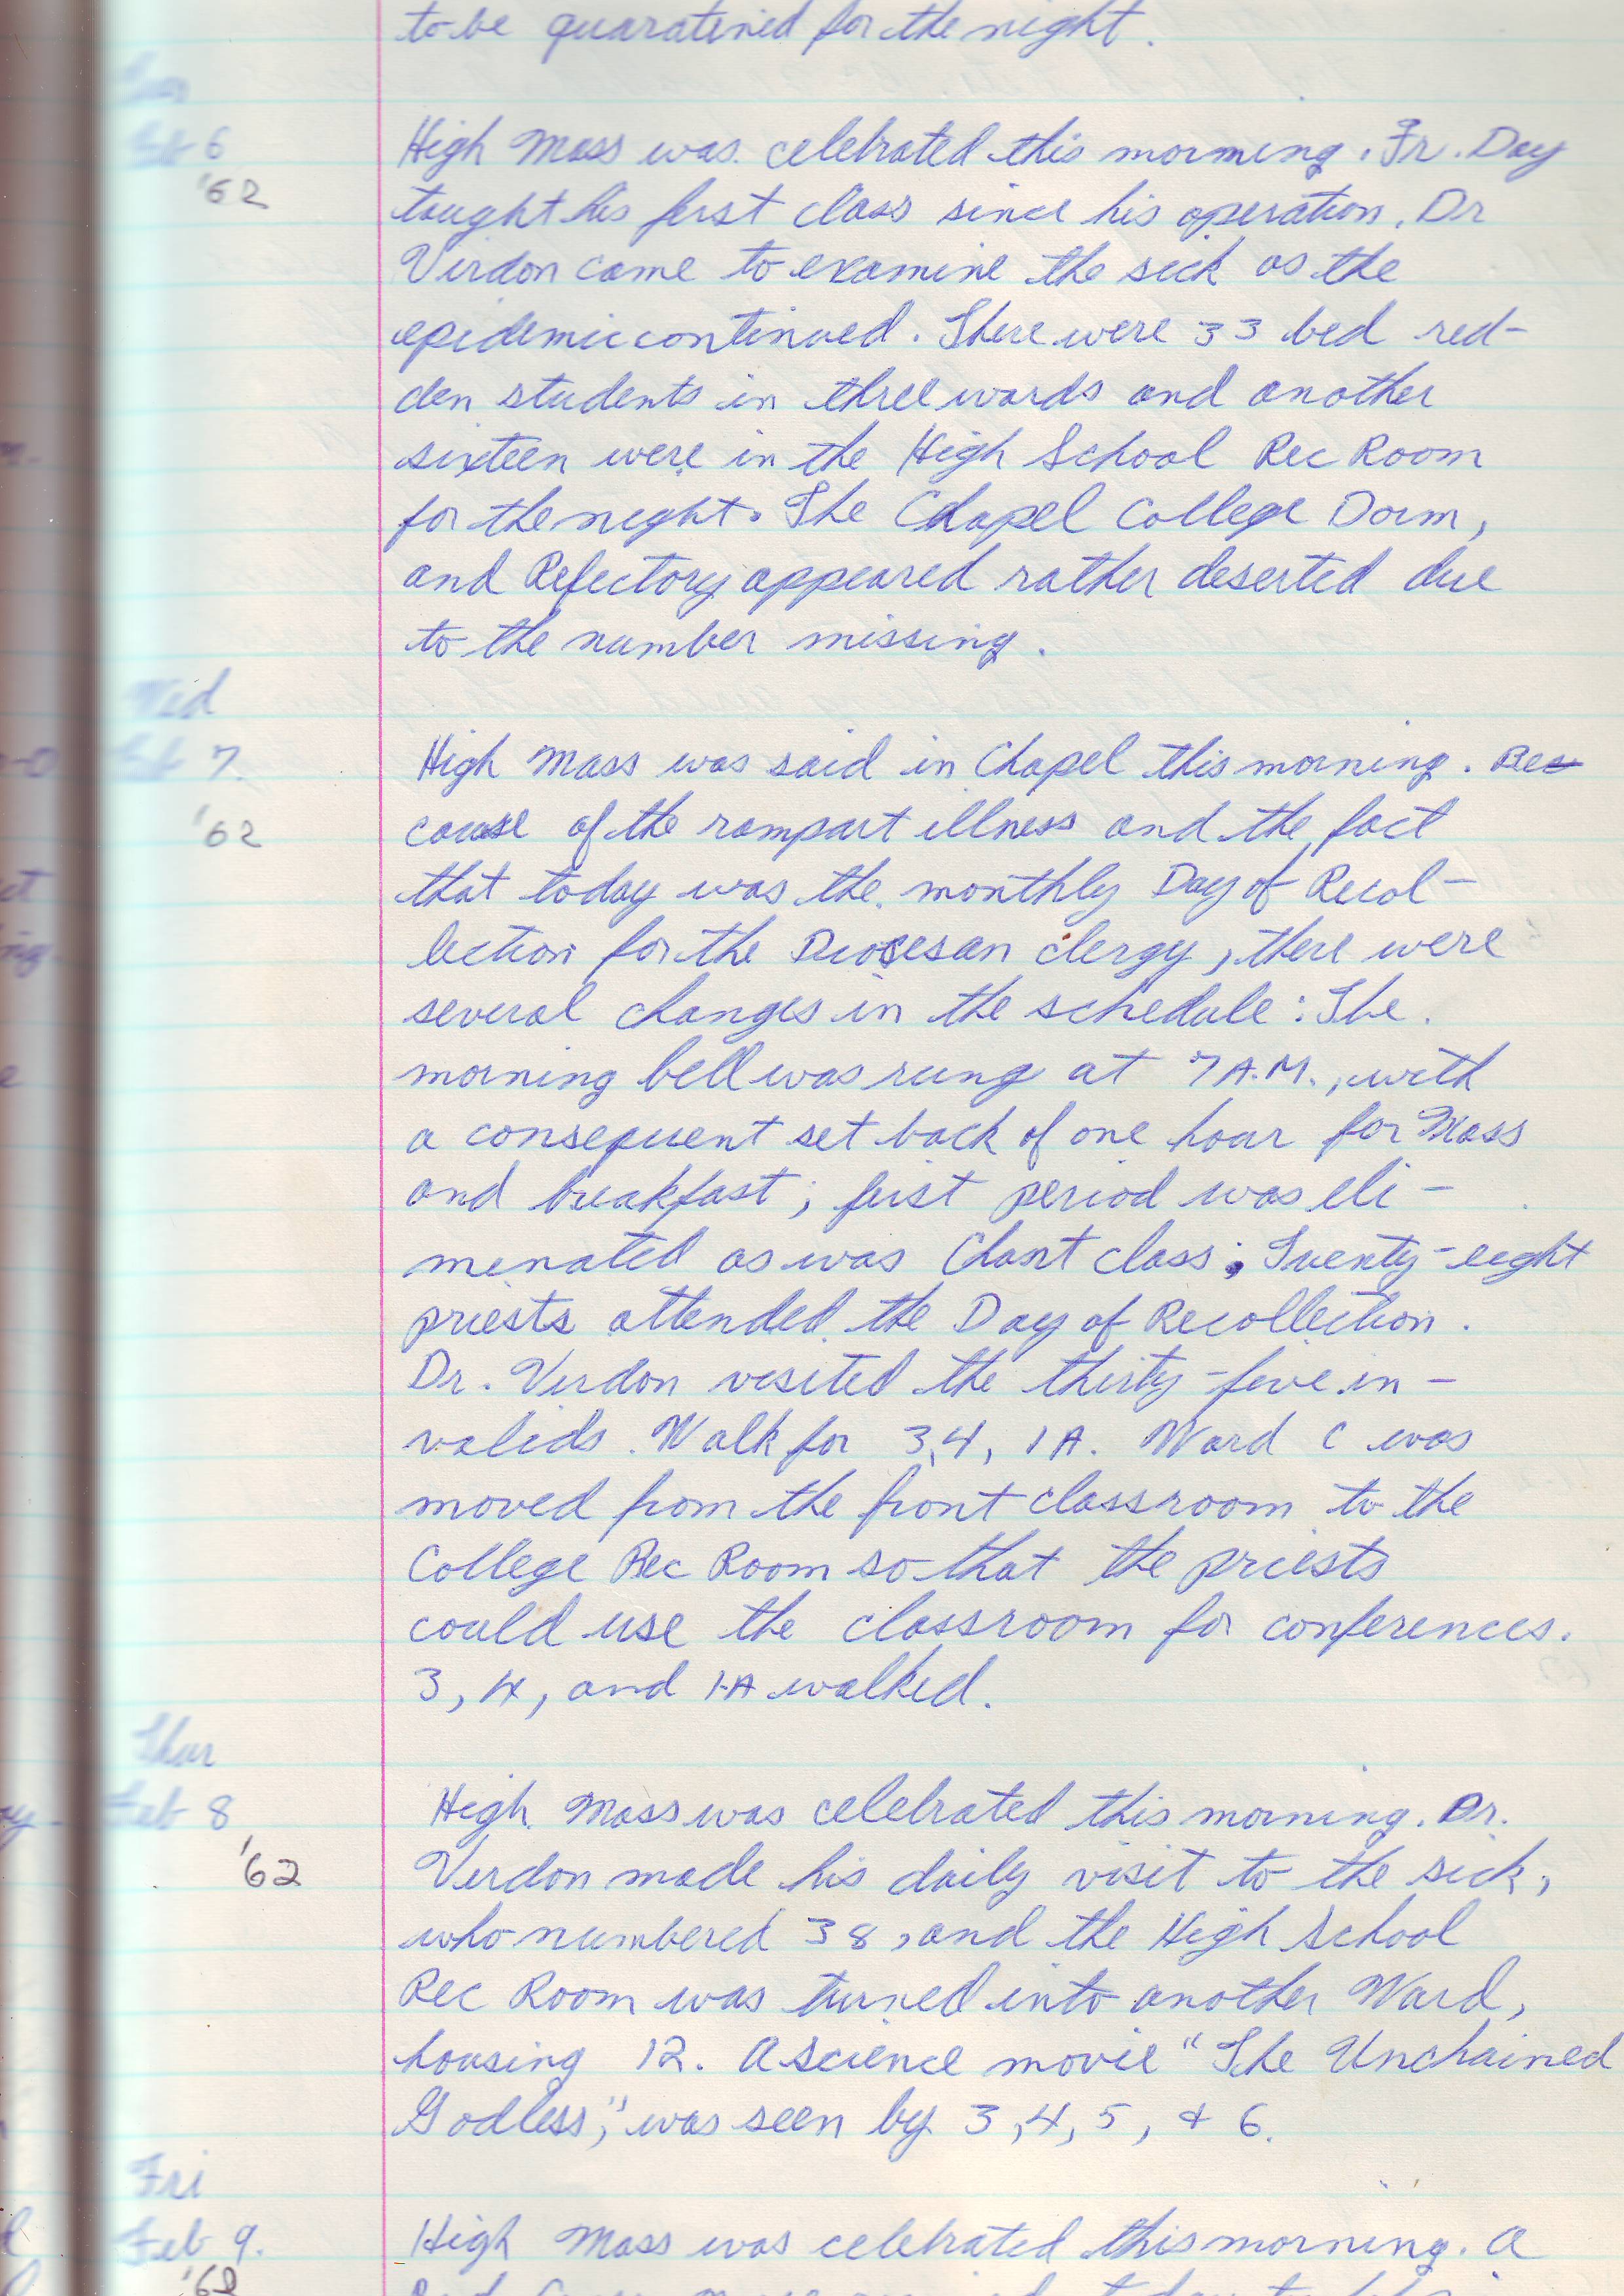 to be quaratined for the night.
6
'62
High Mass was celebrated this morning. Fr. Day
taught his first class since his operation. Dr
Virdon came to examine the sick as the
epidemic continued. There were 33 bed red-
den students in three wards and another
sixteen were in the High School Rec Room
for the night. The Chapel College Dorm,
and Refectory appeared rather deserted due
to the number missing.
Wed
Feb 7
'62
High Mass was said in Chapel this morning. Be-
cause of the rampart illness and the fact
that today was the monthly Day of Recol-
lection for the Diocesan clergy, there were
several changes in the schedule: The
morning bell was rung at 7 A.M., with
a consequent set back of one hour for Mass
and breakfast; first period was eli-
minated as was Chant class; Twenty-eight
priests attended the Day of Recollection.
Dr. Verdon visited the thirty-five in-
valids. Walk for 3, 4, 1A. Ward C was
moved from the front classroom to the
College Rec Room so that the priests
could use the classroom for conferences.
3, 4, and 1-A walked.
Thur
Feb 8
'62
High Mass was celebrated this morning. Dr.
Verdon made his daily visit to the sick,
who numbered 38, and the High School
Rec Room was turned into another Ward,
housing 12. A science movie "The Unchained
Godless," was seen by 3, 4, 5, & 6.
Fri
Feb 9.
'62
High Mass was celebrated this morning. A